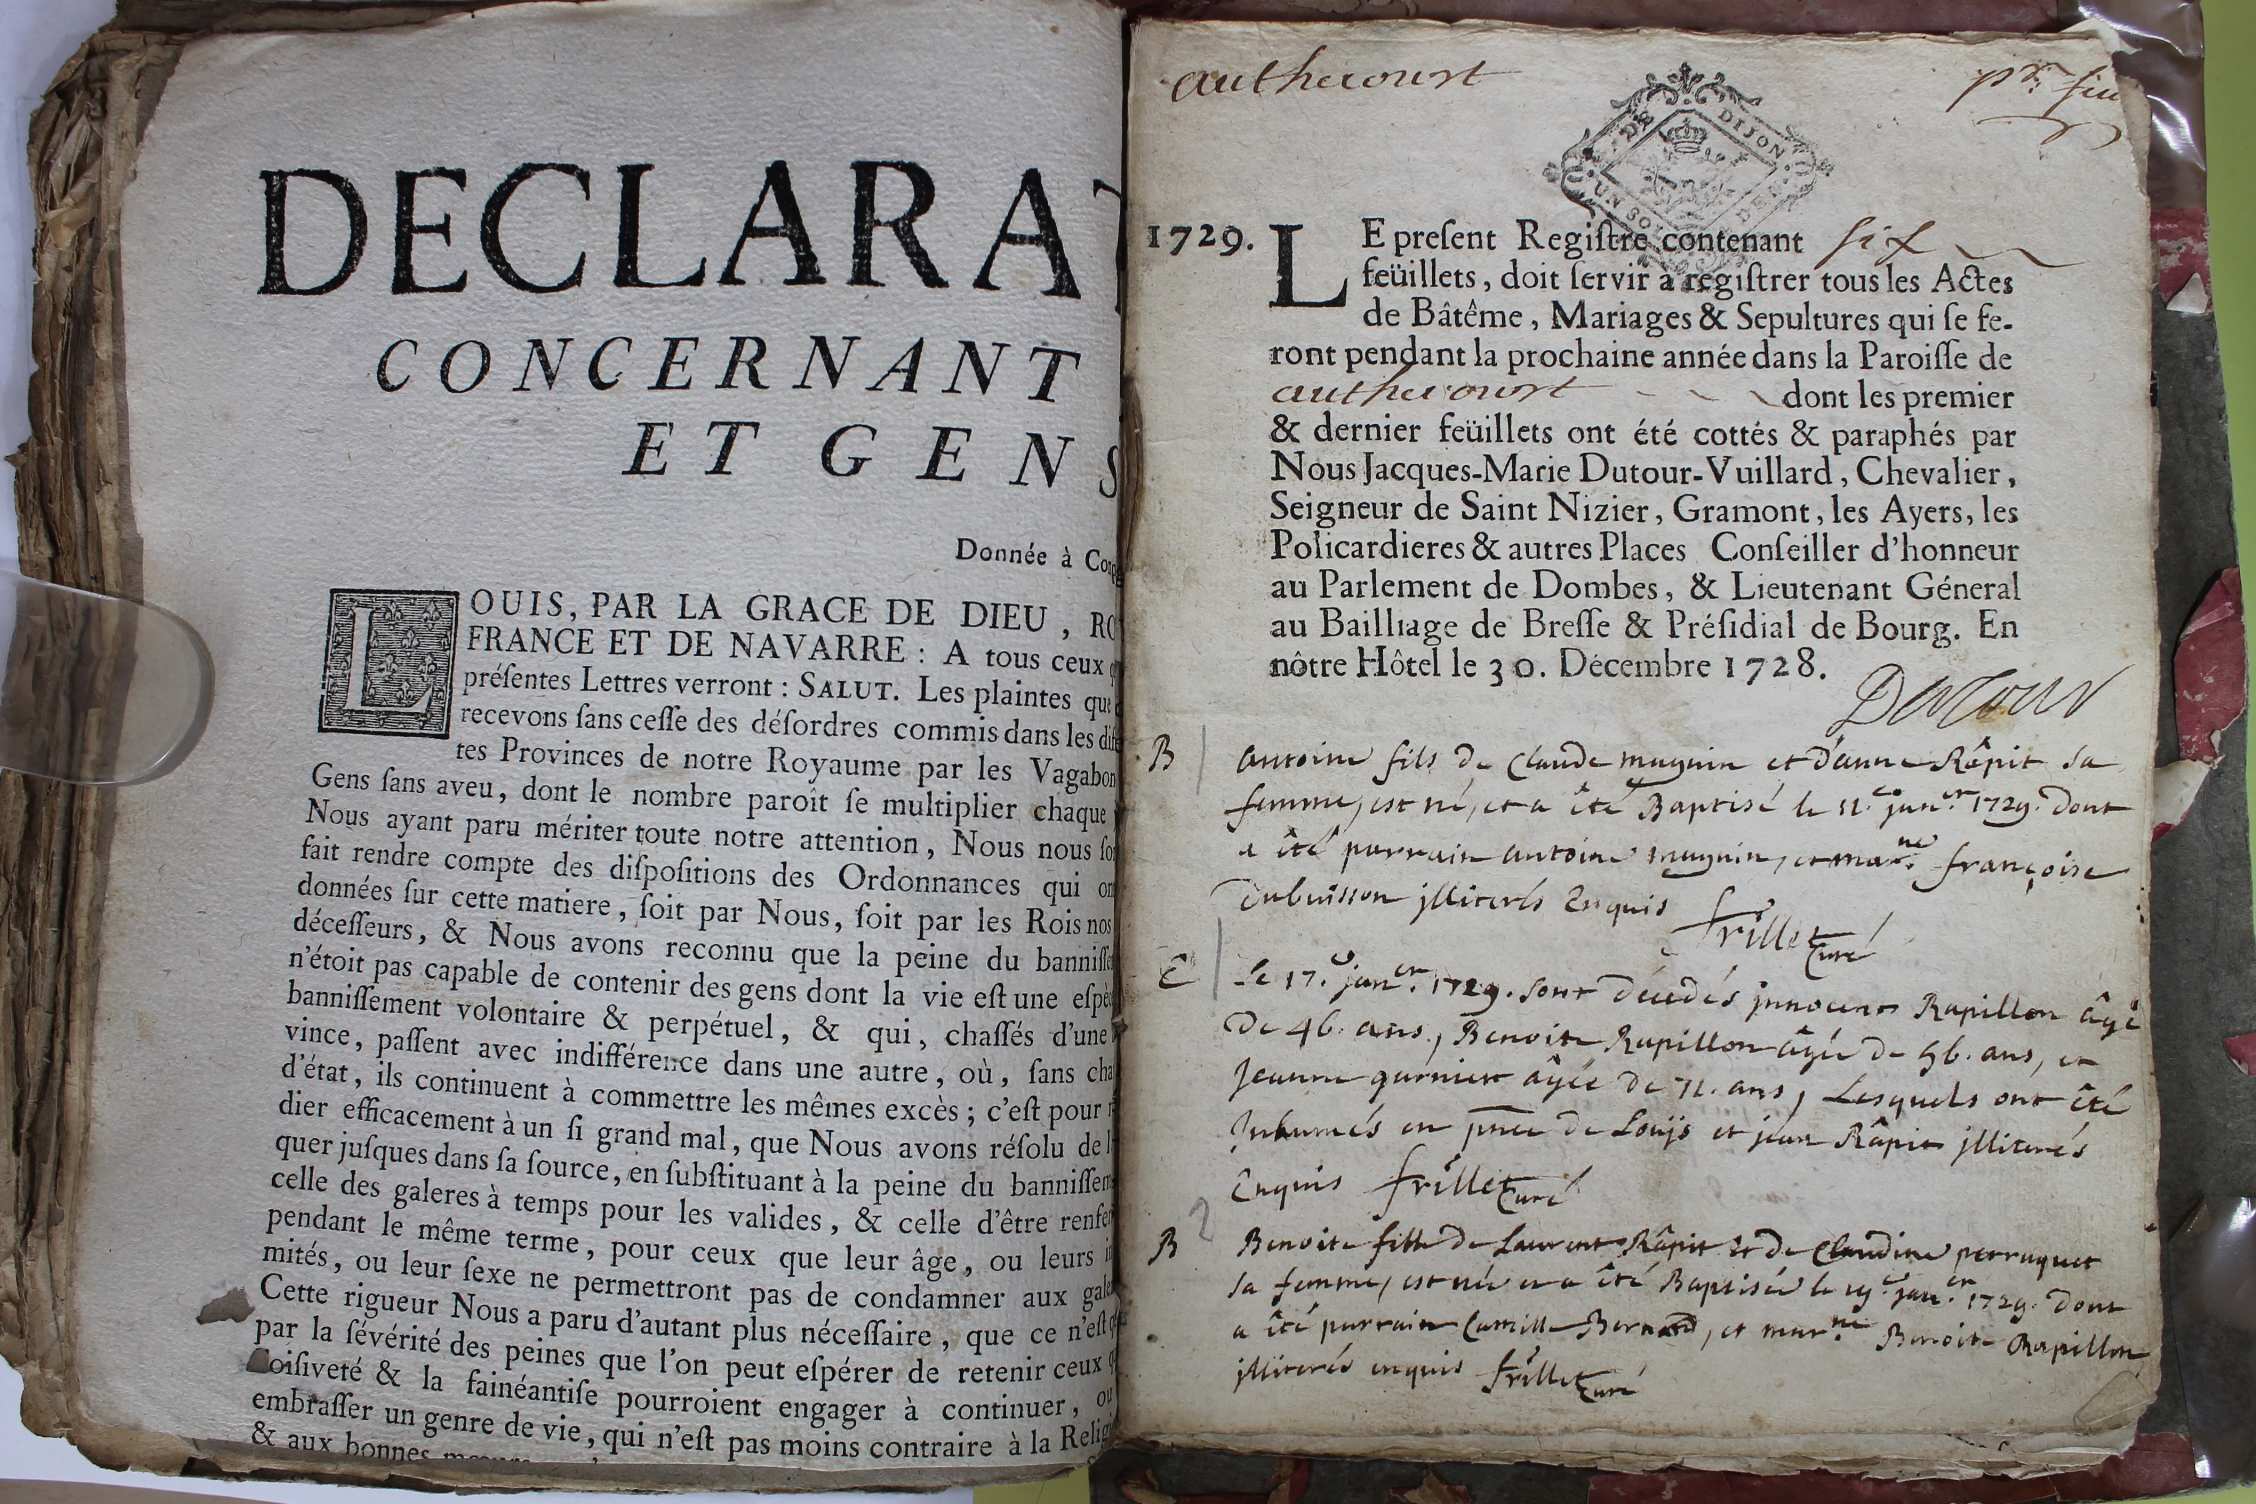 DECLARAT
CONCERNANT
ET GENS
Donnée à Comp
LOUIS, PAR LA GRACE DE DIEU, RO
FRANCE ET DE NAVARRE : A tous ceux q
préſentes Lettres verront : SALUT. Les plaintes que
recevons ſans ceſſe des déſordres commis dans les diffé
tes Provinces de notre Royaume par les Vagabon
Gens ſans aveu, dont le nombre paroît ſe multiplier chaque
Nous ayant paru mériter toute notre attention, Nous nous ſo
fait rendre compte des diſpoſitions des Ordonnances qui on
données ſur cette matiere, ſoit par Nous, ſoit par les Rois nos
déceſſeurs, & Nous avons reconnu que la peine du banniſſe
n'étoit pas capable de contenir des gens dont la vie eſt une eſpè
banniſſement volontaire & perpétuel, & qui, chaſſés d'une
vince, paſſent avec indifférence dans une autre, où, ſans cha
d'état, ils continuent à commettre les mêmes excès ; c'eſt pour r
dier efficacement à un ſi grand mal, que Nous avons réſolu de l
quer juſques dans ſa ſource, en ſubſtituant à la peine du banniſſem
celle des galeres à temps pour les valides, & celle d'être renfer
pendant le même terme, pour ceux que leur âge, ou leurs in
mités, ou leur ſexe ne permettront pas de condamner aux gale
Cette rigueur Nous a paru d'autant plus néceſſaire, que ce n'eſt q
par la ſévérité des peines que l'on peut eſpérer de retenir ceux q
oiſiveté & la fainéantiſe pourroient engager à continuer, ou
embraſſer un genre de vie, qui n'eſt pas moins contraire à la Relig
& aux bonnes
authecourt
pr. feu
DE DIJON
UN SOL DEN
1729. LE preſent Regiſtre contenant six
feüillets, doit ſervir à regiſtrer tous les Actes
de Bâtême, Mariages & Sepultures qui ſe fe-
ront pendant la prochaine année dans la Paroiſſe de
authecourt dont les premier
& dernier feüillets ont été cottés & paraphés par
Nous Jacques-Marie Dutour-Vuillard, Chevalier,
Seigneur de Saint Nizier, Gramont, les Ayers, les
Policardieres & autres Places Conſeiller d'honneur
au Parlement de Dombes, & Lieutenant Géneral
au Bailliage de Breſſe & Préſidial de Bourg. En
nôtre Hôtel le 30. Décembre 1728.
Dutour
B antoine fils de Claude magnin et d'anne Râpit sa
femme, est né, et a été Baptisé le 11.e janer. 1729. Dont
a été parrain antoine magnin, et marne. françoise
Dubuisson illiterés Enquis
frillet Curé
E Le 17.e janer. 1729. sont décédés innocent Rapillon âgé
De 46. ans, Benoite Rapillon âgée de 56. ans, et
Jeanne garnier âgée de 71. ans, Lesquels ont été
Inhumés en pnce de Loüis et jean Râpit illiterés
Enquis frillet Curé
2
B Benoite fille de Laurent Râpit et de Claudine perruquet
sa femme, est née et a été Baptisée le 19.e janer. 1729. Dont
a été parrain Camille Bernard, et marne. Benoite Rapillon
illiterés enquis frillet Curé